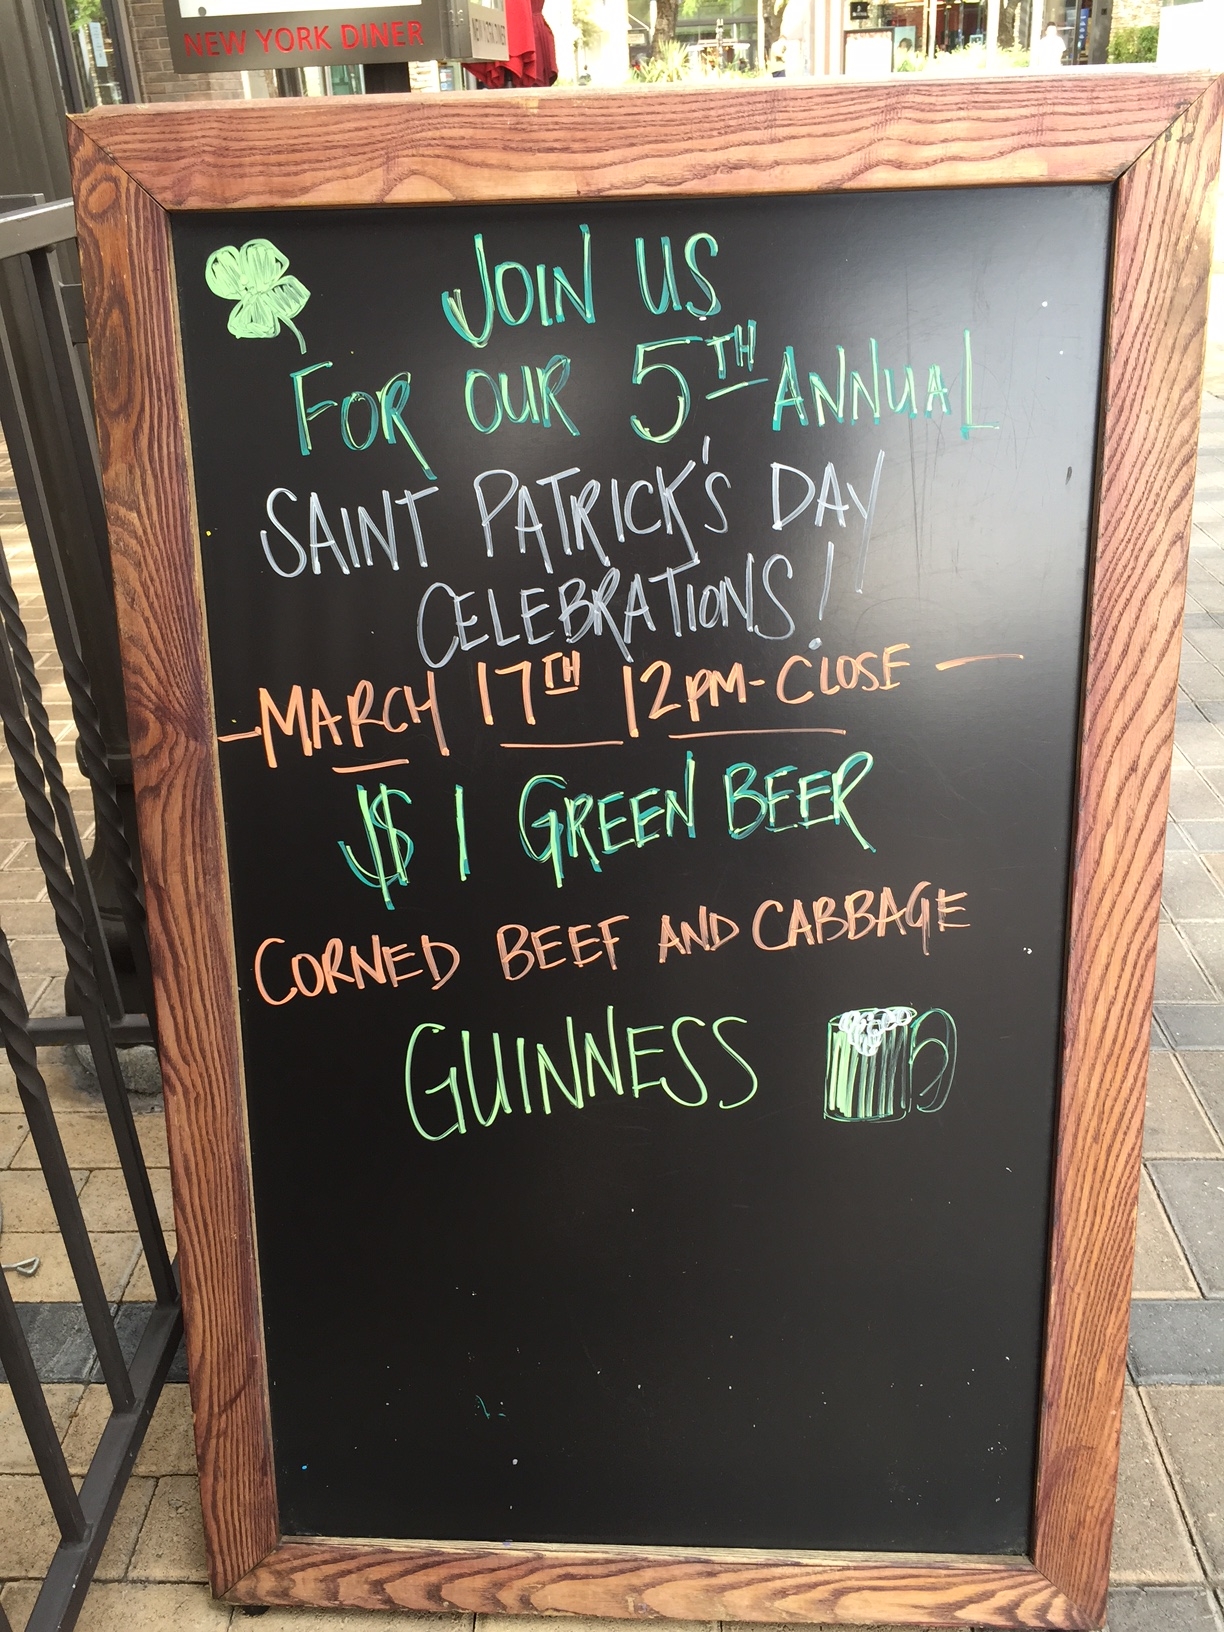 NEW YORK DINER
JOIN US
FOR OUR 5TH ANNUAL
SAINT PATRICK'S DAY
CELEBRATIONS!
- MARCH 17TH 12PM - CLOSE -
$1 GREEN BEER
CORNED BEEF AND CABBAGE
GUINNESS